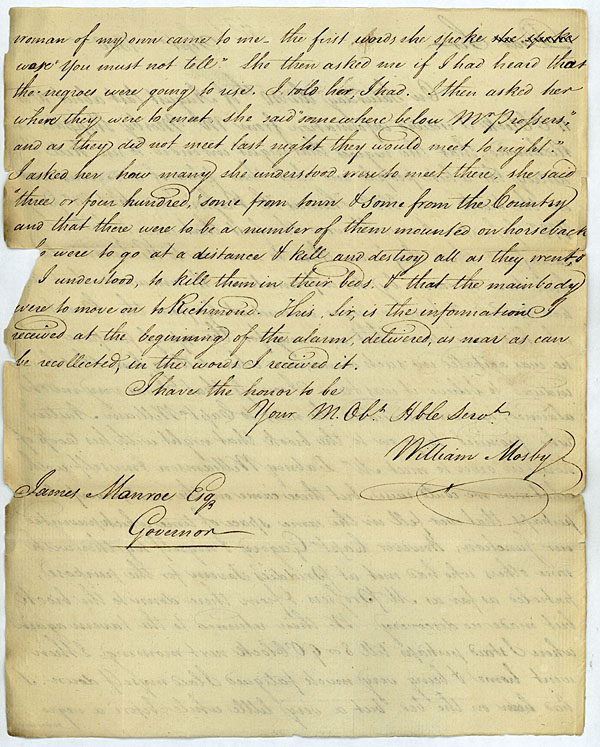 woman of my own came to me - the first words she spoke she spoke
was "You must not tell." She then asked me if I had heard that
the negroes were going to rise. I told her, I had. I then asked her
where they were to meet, she said "somewhere below Mr Prossers,"
and as they did not meet last night they would meet to night."
I asked her how many she understood were to meet there, she said
"three or four hundred, some from town & some from the Country
and that there were to be a number of them mounted on horseback
were to go at a distance & kill and destroy all as they went,
I understood, to kill them in their beds. & that the main body
were to move on to Richmond. This, Sir, is the information I
received at the beginning of the alarm, delivered, as near as can
be recollected, in the words I received it.
I have the honor to be
Your M. Obt. Hble Servt.
William Mosby
James Monroe Esqr
Governor